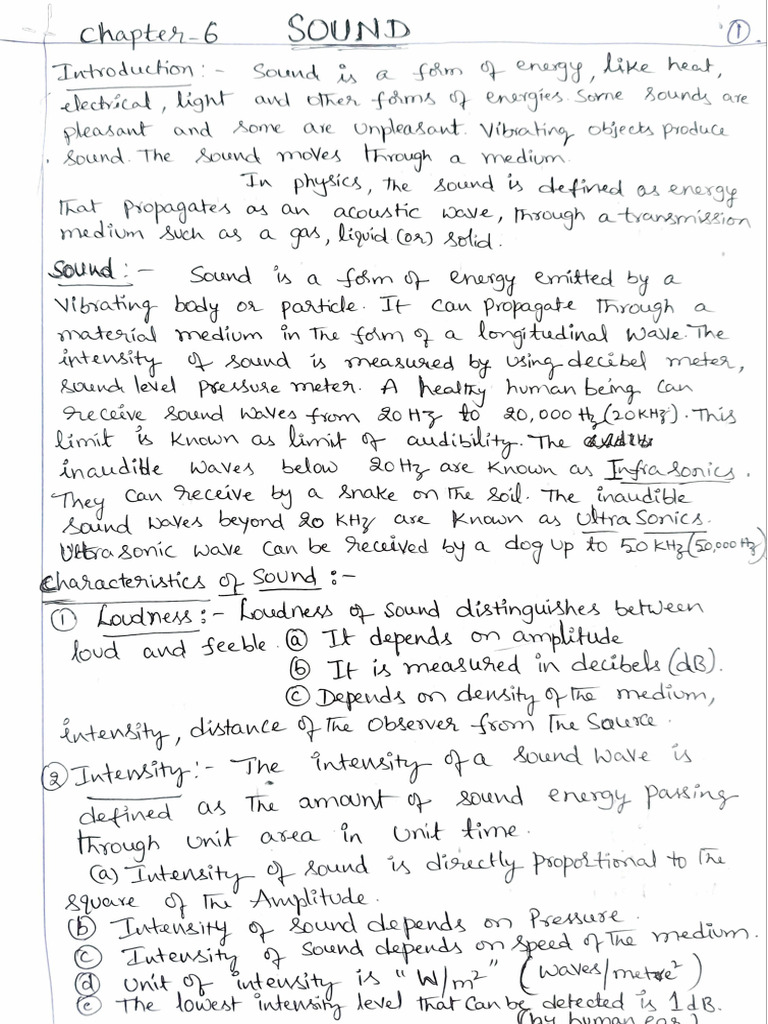 Chapter-6 SOUND ①
Introduction :- Sound is a form of energy, like heat,
electrical, light and other forms of energies. Some sounds are
pleasant and some are unpleasant. Vibrating objects produce
sound. The sound moves through a medium.
In physics, the sound is defined as energy
that propagates as an acoustic wave, through a transmission
medium such as a gas, liquid (or) solid.
Sound :- Sound is a form of energy emitted by a
Vibrating body or particle. It can propagate through a
material medium in the form of a longitudinal wave. The
intensity of sound is measured by using decibel meter,
sound level pressure meter. A healthy human being can
receive sound waves from 20 Hz to 20,000 Hz (20 KHz). This
limit is known as limit of audibility. The
inaudible waves below 20 Hz are known as Infrasonics.
They can receive by a snake on the soil. The inaudible
sound waves beyond 20 KHz are known as Ultrasonics.
Ultrasonic wave can be received by a dog up to 50 KHz (50,000 Hz)
Characteristics of Sound :-
① Loudness :- Loudness of sound distinguishes between
loud and feeble. ⓐ It depends on amplitude
ⓑ It is measured in decibels (dB).
ⓒ Depends on density of the medium,
intensity, distance of the observer from the Source.
② Intensity :- The intensity of a sound wave is
defined as the amount of sound energy passing
through unit area in unit time.
(a) Intensity of sound is directly proportional to the
square of the Amplitude.
ⓑ Intensity of sound depends on Pressure.
ⓒ Intensity of sound depends on speed of the medium.
ⓓ Unit of intensity is "W/m²" (waves/metre²)
ⓔ The lowest intensity level that can be detected is 1 dB.
(by human ear)